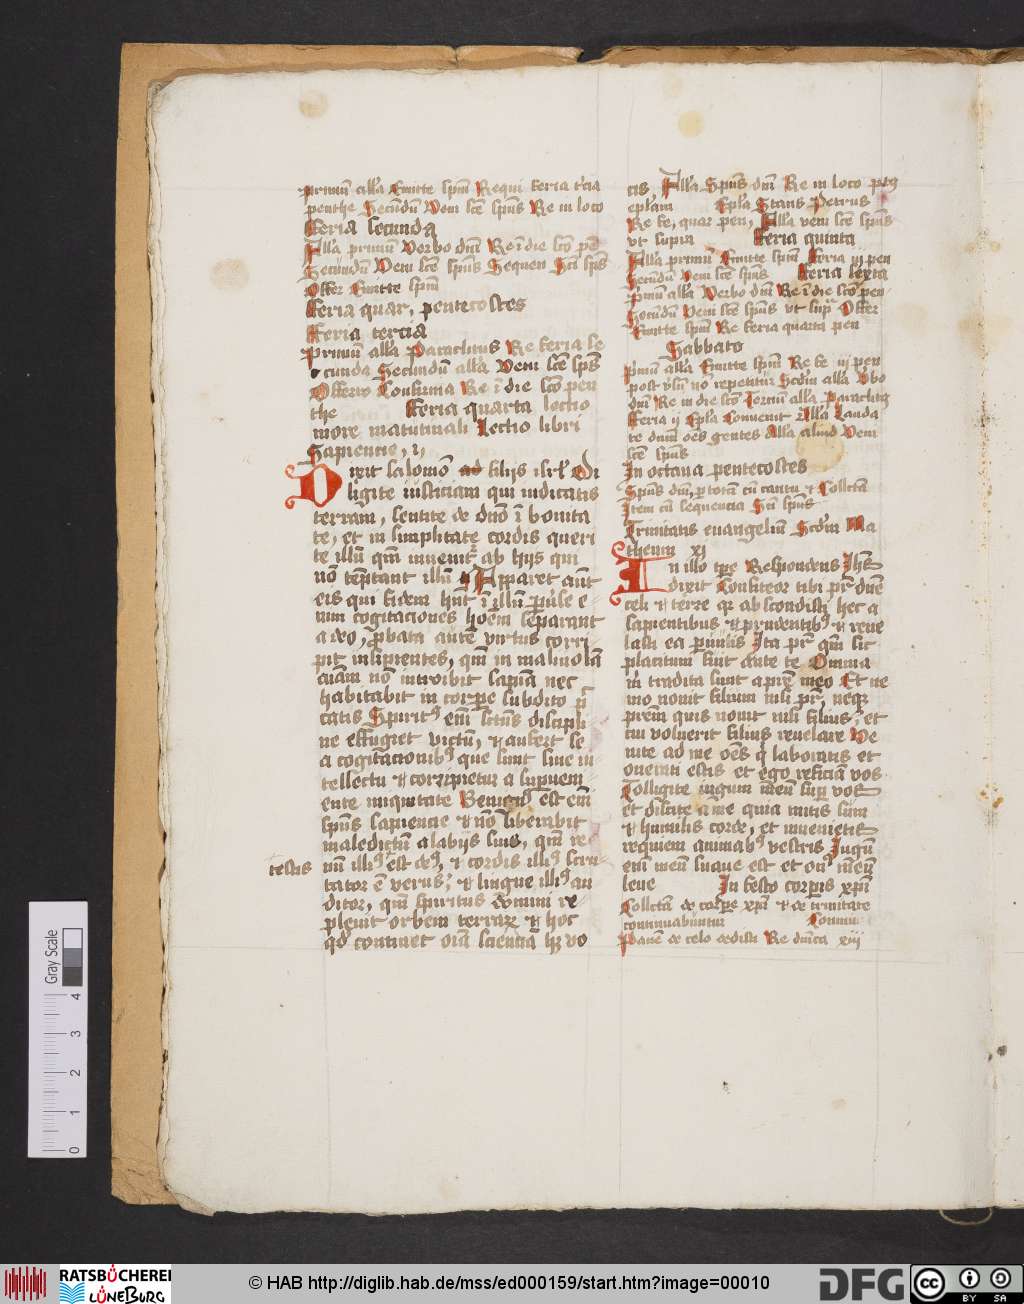 primū alla Emitte spm Requi feria tcia
penthe Secūdū Veni scē spūs Re in loco
Feria secunda
Alla primū Verbo dm̄ Re ī die sco pē
Secūdū Veni scē spūs Sequen Sci sps
Offer Emitte spm
Feria quar, pentecostes
Feria tercia
Primū alla Paraclitus Re feria se
cunda Secundū alla Veni scē sps
Offerto Confirma Re ī die sco pen
the Feria quarta lectio
more matutinali Lectio libri
Sapiencie, i,
Dixit salomō ad filijs isrl Di
ligite iusticiam qui iudicatis
terram, sentite de dno ī bonita
te, et in simplicitate cordis queri
te illū qm̄ invenit ab hijs qui
nō temptant illū Apparet aūt
eis qui fidem hnt ī illū pūse e
nim cogitaciones hoēm separant
a deo, pbata autē virtus corri
pit insipientes, qm̄ in maliuolā
aiam nō introibit sapīa nec
habitabit in corpe subdito p
catis Spiritꝰ em̄ sctūs discipli
ne effugiet fictū, et aufert se
a cogitacionibꝰ que sunt sine in
tellectu et corripietur a supuem
ente iniquitate Benignꝰ est em̄
spūs sapiencie et nō liberabit
maledictū a labijs suis, qm̄ re
testis
nū illiꝰ est deꝰ, et cordis illiꝰ scru
tator ē verus, et lingue illiꝰ au
ditor, qm̄ spiritus domini re
pleuit orbem terrarz et hoc
qd continet oīa scienciā hz vo
cis Alla Spūs dm̄ Re in loco pen
eplam Epla Stans Petrus
Re fe, quar pen, Alla veni scē spūs
vt supra Feria quinta
Alla primū Emitte spm Feria iij pen
Secūdū Veni scē spūs Feria sexta
Pmū alla Verbo dm̄ Re ī die sco pen
Secūdū Veni scē spūs vt supra Offer
Emitte spm Re feria quarta pen
Sabbato
Pmū alla Emitte spm Re fe iij pen
post vsū nō repetitur Scdm alla Vbo
dm̄ Re in die sco Terciū alla Paraclitꝰ
Feria ij Epla Convenit Alla Lauda
te dnm oēs gentes Alla aliud Veni
scē spūs
In octava pentecostes
Spūs dm̄, p totā cū cantu et Collcta
Item cū sequencia Sci spūs
Trinitatis evangeliū Scdm Ma
theum xi
In illo tpe Respondens Ihs
dixit Confiteor tibi pr dne
celi et terre qr abscondisti hec a
sapientibus et prudentibꝰ et reue
lasti ea puulis Ita pr qm sic
placitum fuit ante te Omnia
m tradita sunt a pre meo Et ne
mo nouit filium nisi pr, neqz
prem quis nouit nisi filius, et
cui voluerit filius reuelare Ve
nite ad me oēs q laboratis et
onerati estis et ego reficiā vos
Tolligite iugum meū sup vos
et discite a me quia mitis sum
et humilis corde, et invenietis
requiem animabꝰ vestris Iugū
em̄ meū suaue est et onꝰ meū
leue In festo corpis xpi
Collcta de corpe xpi et de trinitate
continuabuntur Comun
Panē de celo dedisti Re dnica xiii
Gray Scale
0 1 2 3 4
RATSBÜCHEREI
LÜNEBURG
© HAB http://diglib.hab.de/mss/ed000159/start.htm?image=00010
DFG
cc BY SA